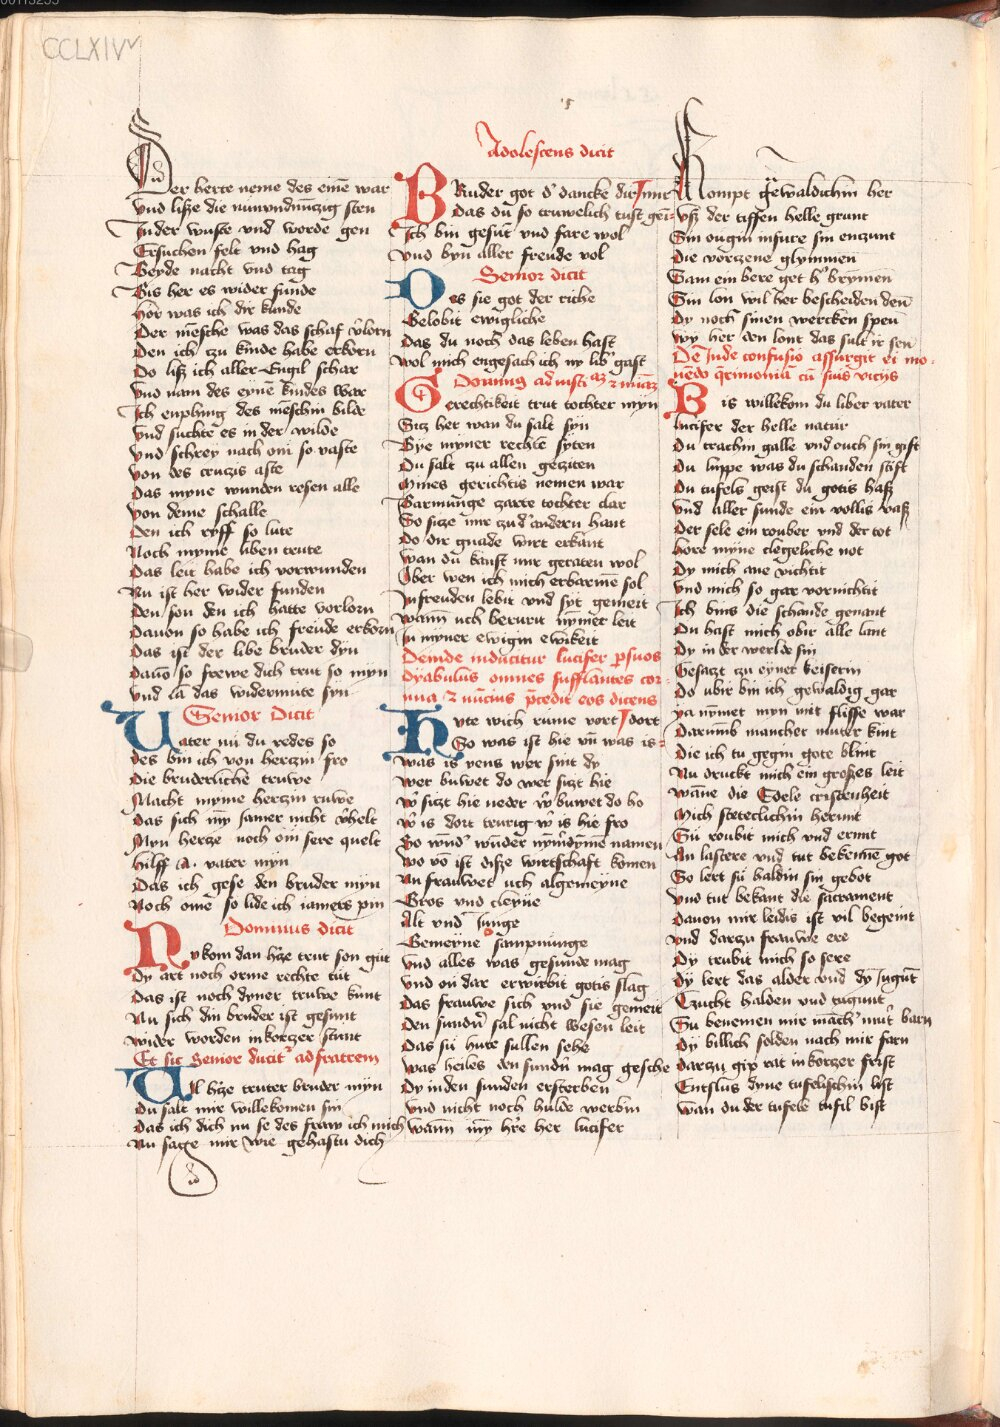 CCLXIVv
Der herte neme des eine war
Und lisze die nunundnunzig sten
In der wuste und worde gen
Ersuchen felt und hag
Beyde nacht und tag
Bis her es wider funde
Hor was ich dir kunde
Der mesche was das schaf vˀlorn
Den ich czu kinde habe erkorn
Do lisz ich aller Engil schar
Und nam des eynē kindes war
Ich enphing des meschin bilde
Und suchte es in der wilde
Und schrey nach om so vaste
Von des cruczis aste
Das myne wunden resen alle
Von deme schalle
Den ich ryff so lute
Noch myme liben trute
Das leit habe ich vorwunden
Nu ist her wider funden
Den son den ich hatte vorlorn
Davon so habe ich freude erkorn
Das ist der libe bruder dyn
Davō so frewe dich trut so myn
Und lā das widermute syn
Senior Dicit
Vater nu du redes so
Des bin ich von herczin fro
Die bruderliche truwe
Macht myme herczin ruwe
Das sich my jamer nicht vˀhelt
Myn hercze noch om sere quelt
Hilff A vater myn
Das ich gese den bruder myn
Noch ome so lide ich iamers pin
Dominus dicit
Nu kom dan hˀcze trut son gut
Dy art noch orme rechte tut
Das ist noch dyner truwe kunt
Nu sich din bruder ist gesunt
Wider worden in korczer stunt
Et sic Senior ducitˀ ad fratrem
Vil hˀcze truter bruder myn
Du salt mir willekomen sin
Das ich dich nu se des fraw ich mich
Nu sage mir wie gehastu dich
Adolescens dicit
Bruder got dˀ dancke dir ymmˀ
Das du so truwelich tust gein
Ich bin gesūt und fare wol
Und byn aller freude vol
Senior dicit
Des sie got der riche
Gelobit ewigliche
Das du noch das leben hast
Wol mich engesach ich ny libˀ gast
Gerechtikeit trut tochter myn
Sicz her wan du salt syn
Bye myner rechte syten
Du salt zu allen geziten
Mines gerichtis nemen war
Barmunge zarte tochter clar
So sicze mir zu dˀ andern hant
Do dir gnade wirt erkant
Wan du kanst mir geraten wol
Uber wen ich mich erbarme sol
In freuden lebit und syt gemeit
Wann uch berurit nymer leit
In myner ewigin ewikeit
Deinde inducitur lucifer
Dyabulus omnes sufflantes cor-
nua et nuncius precedit eos dicens
Hute wich rume vort dort
So was ist hie un was is
Was is yens wer sint dy
Wer buwet do wer siczt hie
Wˀ siczt hie neder wˀ buwet do ho
Wˀ is dort trurig wˀ is hie fro
Wo vō ist disze wirtschaft komen
Nu frauwet uch algemeyne
Gros und cleyne
Alt und junge
Gemeyne sampnunge
Und alles was gesunde mag
Und on dar erwirbit gotis slag
Das frauwe sich und sie gemeit
Den sundˀ sal nicht wesen leit
Das su hute sullen sehe
Was heiles den sundˀn mag gesche
Dy in den sunden ersterben
Und nicht noch hulde werbin
Wann my hˀre her lucifer
Kompt gewaldichin her
Usz der tiffen helle grunt
Sin ougin insure sin enczunt
Die vorczene glymmen
Sam ein bere get hˀ brymen
Sin lon wil her bescheiden den
Dy noch sinen wercken spen
Wy her den lont das sult ir sen
Deinde confusio assurgit ei mo-
vendo querimoniam cum suis viciis
Bis willekom du liber vater
Lucifer der helle natur
Du trachin galle und ouch sin gift
Du luppe was du schanden stift
Du tufels geist du gotis hasz
Und aller sunde ein vollis vasz
Der sele ein rouber und der tot
Hore myne clegeliche not
Dy mich ane vichtit
Und mich so gar vornichtit
Ich bins die schande genant
Du hast mich obir alle lant
Dy in der werlde sin
Gesaczt zu eyner keiserin
Do ubir bin ich gewaldig gar
Ya nymet myn mit flisse war
Darumb mancher muter kint
Die ich tu gegin gote blint
Nu druckt mich ein groszes leit
Wanne die Edele cristenheit
Mich steteclichin herint
Su roubit mich und ermt
An lastere und tut bekenne got
So lert su haldin sin gebot
Und tut bekant die sacrament
Davon mir leidis ist vil begeint
Und darzu frauwe ere
Dy trubit mich so sere
Dy lert das alder und dy jugunt
Czucht halden und tugunt
Su benemen mir manchˀ mutˀ barn
Dy billich solden nach mir farn
Darzu gip rat in korczer frist
Entslus dyne tufelischin list
Wan du der tufele tufil bist